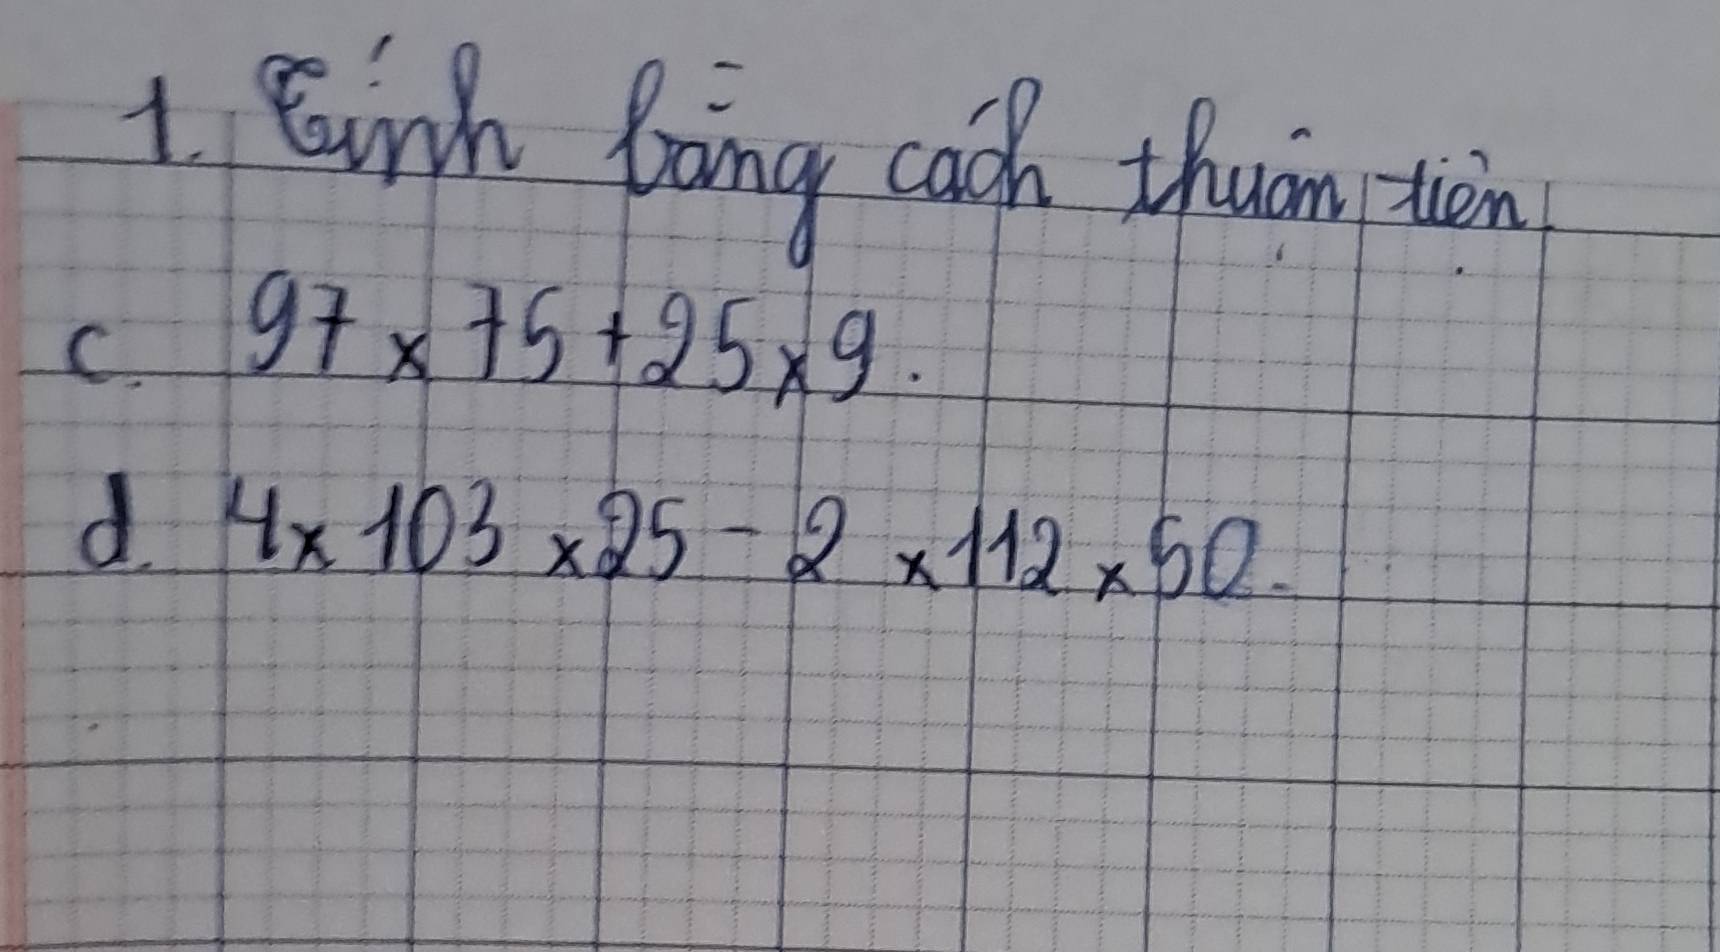 1. Tính bằng cách thuận tiện
c. 97 x 75 + 25 x 9.
d. 4 x 103 x 25 - 2 x 112 x 50.